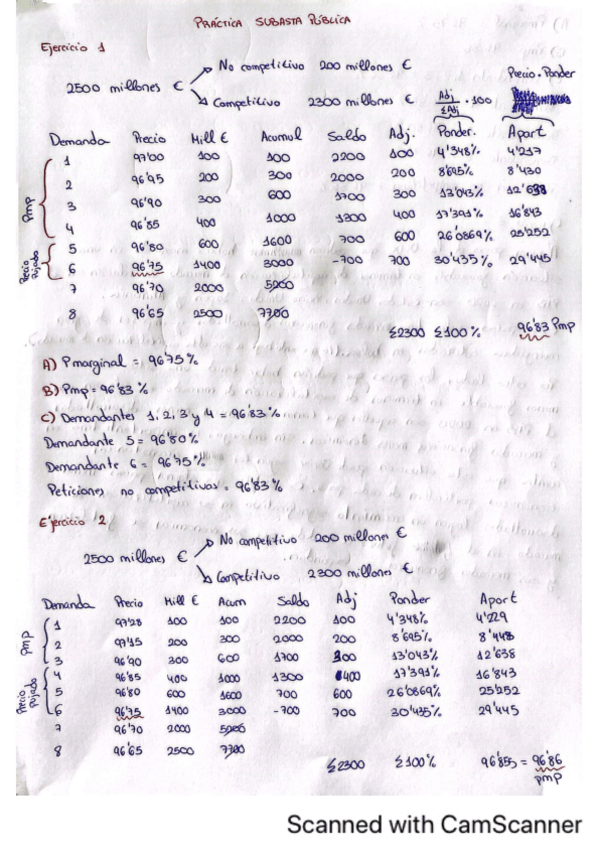 PRÁCTICA SUBASTA PÚBLICA
Ejercicio 1
No competitivo 200 millones €
2500 millones €
Competitivo 2300 millones €
Adj / ΣAdj · 100
Precio · Ponder
Demanda Precio Mill € Acumul Saldo Adj. Ponder. Aport
1 97'00 100 100 2200 100 4'348% 4'217
2 96'95 200 300 2000 200 8'695% 8'430
3 96'90 300 600 1700 300 13'043% 12'638
4 96'85 400 1000 1300 400 17'391% 16'843
5 96'80 600 1600 700 600 26'0869% 25'252
6 96'75 1400 3000 -700 700 30'435% 29'445
7 96'70 2000 5000
8 96'65 2500 7700
Pmp
Precio Pujado
Σ2300 Σ100% 96'83 Pmp
A) Pmarginal = 96'75%
B) Pmp = 96'83%
C) Demandantes 1, 2, 3 y 4 = 96'83%
Demandante 5 = 96'80%
Demandante 6 = 96'75%
Peticiones no competitivas = 96'83%
Ejercicio 2
No competitivo 200 millones €
2500 millones €
Competitivo 2300 millones €
Demanda Precio Mill € Acum Saldo Adj Ponder Aport
1 97'28 100 100 2200 100 4'348% 4'229
2 97'15 200 300 2000 200 8'695% 8'448
3 96'90 300 600 1700 300 13'043% 12'638
4 96'85 400 1000 1300 400 17'391% 16'843
5 96'80 600 1600 700 600 26'0869% 25'252
6 96'75 1400 3000 -700 700 30'435% 29'445
7 96'70 2000 5000
8 96'65 2500 7700
Pmp
Precio pujado
Σ2300 Σ100% 96'855 = 96'86
pmp
Scanned with CamScanner